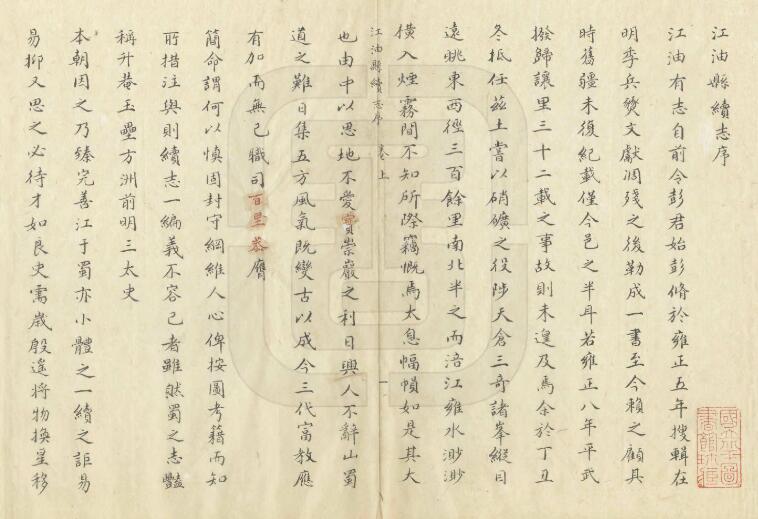 江油縣續志序
江油有志自前令彭君始彭脩於雍正五年搜輯在
明季兵燹文獻凋殘之後勒成一書至今賴之顧其
時舊疆未復紀載僅今邑之半耳若雍正八年平武
撥歸讓里三十二載之事故則未遑及焉余於丁丑
冬抵任茲土嘗以硝礦之役陟天倉三奇諸峯縱目
遠眺東西徑三百餘里南北半之而涪江雍水渺渺
橫入煙霧間不知所際竊慨焉太息幅幀如是其大
江油縣續志序 卷上 一
也由中以思地不愛寶崇巖之利日興人不辭山蜀
道之難日集五方風氣既變古以成今三代富教應
有加而無已職司百里恭膺
簡命謂何以慎固封守綱維人心俾按圖考藉而知
所措注與則續志一編義不容已者雖然蜀之志豔
稱升菴玉壘方洲前明三太史
本朝因之乃臻完善江于蜀亦小體之一續之詎易
易抑又思之必待才如良史需歲殷遙將物換星移